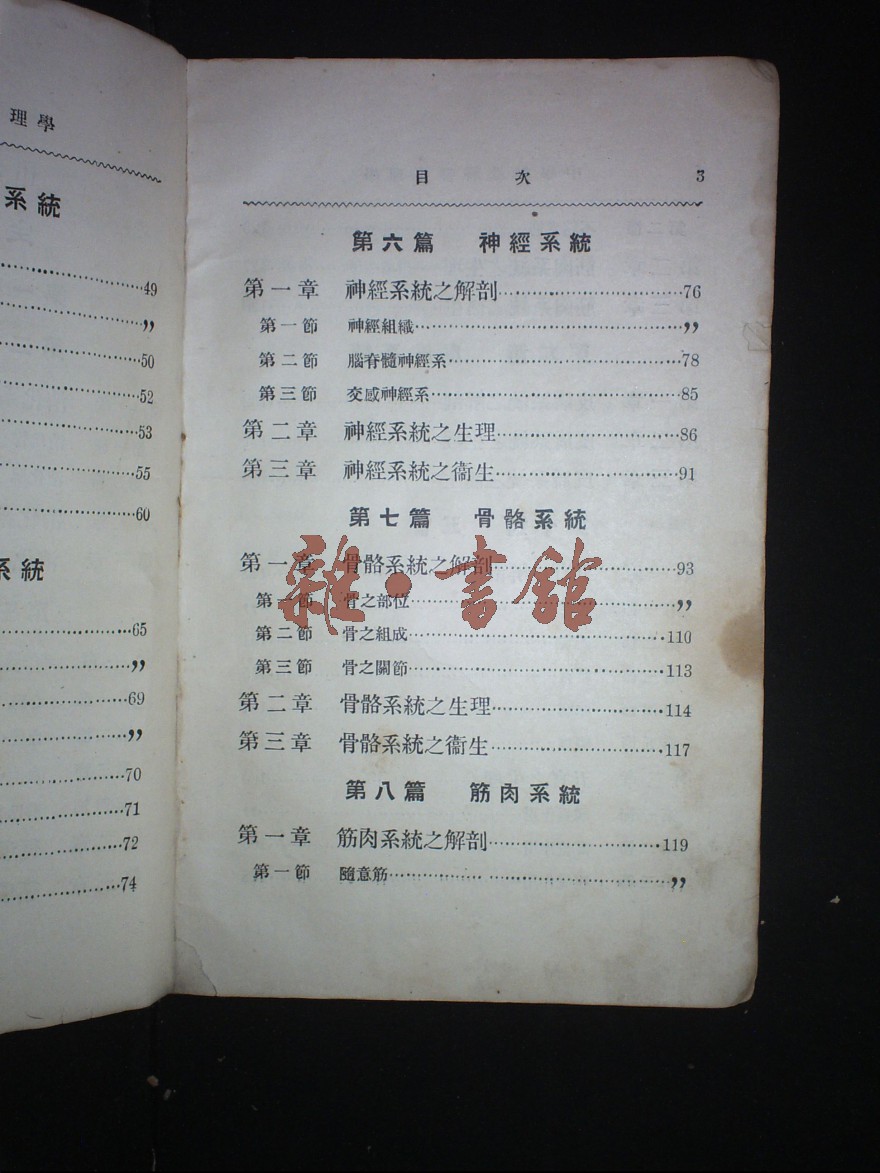 理學
系統
49
”
50
52
53
55
60
系統
65
”
69
”
70
71
72
74
目 次 3
第六篇 神經系統
第一章 神經系統之解剖……76
第一節 神經組織……”
第二節 腦脊髓神經系……78
第三節 交感神經系……85
第二章 神經系統之生理……86
第三章 神經系統之衞生……91
第七篇 骨骼系統
第一章 骨骼系統之解剖……93
第一節 骨之部位……”
第二節 骨之組成……110
第三節 骨之關節……113
第二章 骨骼系統之生理……114
第三章 骨骼系統之衞生……117
第八篇 筋肉系統
第一章 筋肉系統之解剖……119
第一節 隨意筋……”
雜·書館